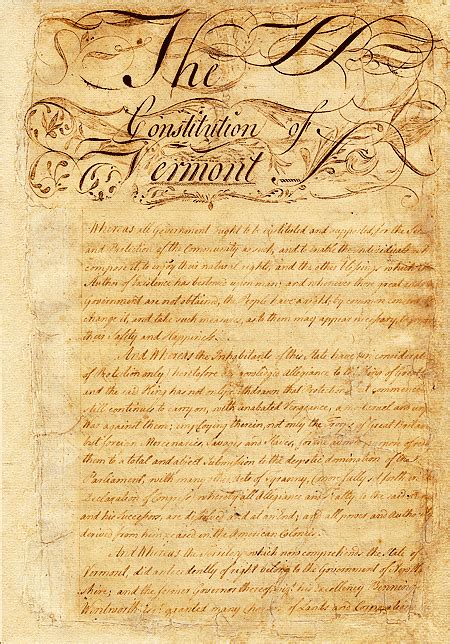 The
Constitution of
Vermont
Whereas all Government ought to be instituted and supported for the
and Protection of the Community as such, and to enable the individuals
compose it, to enjoy their natural rights, and the other Blessings which
Author of Existence has bestowed upon man; and whenever those great
Government are not obtained, the People have a right, by common consent
change it, and take such measures, as to them may appear necessary, to
their Safety and Happiness.
And Whereas the Inhabitants of this State have
of Protection only) heretofore acknowledged allegiance to the King of
and the said King has not only withdrawn that Protection, but commenced
still continues to carry on, with unabated Vengeance, a most cruel and
War against them; employing therein, not only the Troops of Great Britain
but foreign Mercenaries, Savages and Slaves, for the avowed purpose of
them to a total and abject Submission to the despotic domination of the
Parliament, with many other Acts of Tyranny, (more fully set forth in
Declaration of Congress) whereby all Allegiance and Fealty to the said
and his Successors, are dissolved and at an End; and all power and
derived from him, ceased in the American Colonies.
And Whereas the Territory which now comprehends the State of
Vermont, did antecedently of right belong to the Government of
shire; and the former Governor thereof, viz. his Excellency Benning
Wentworth Esqr. granted many Charters of Lands and